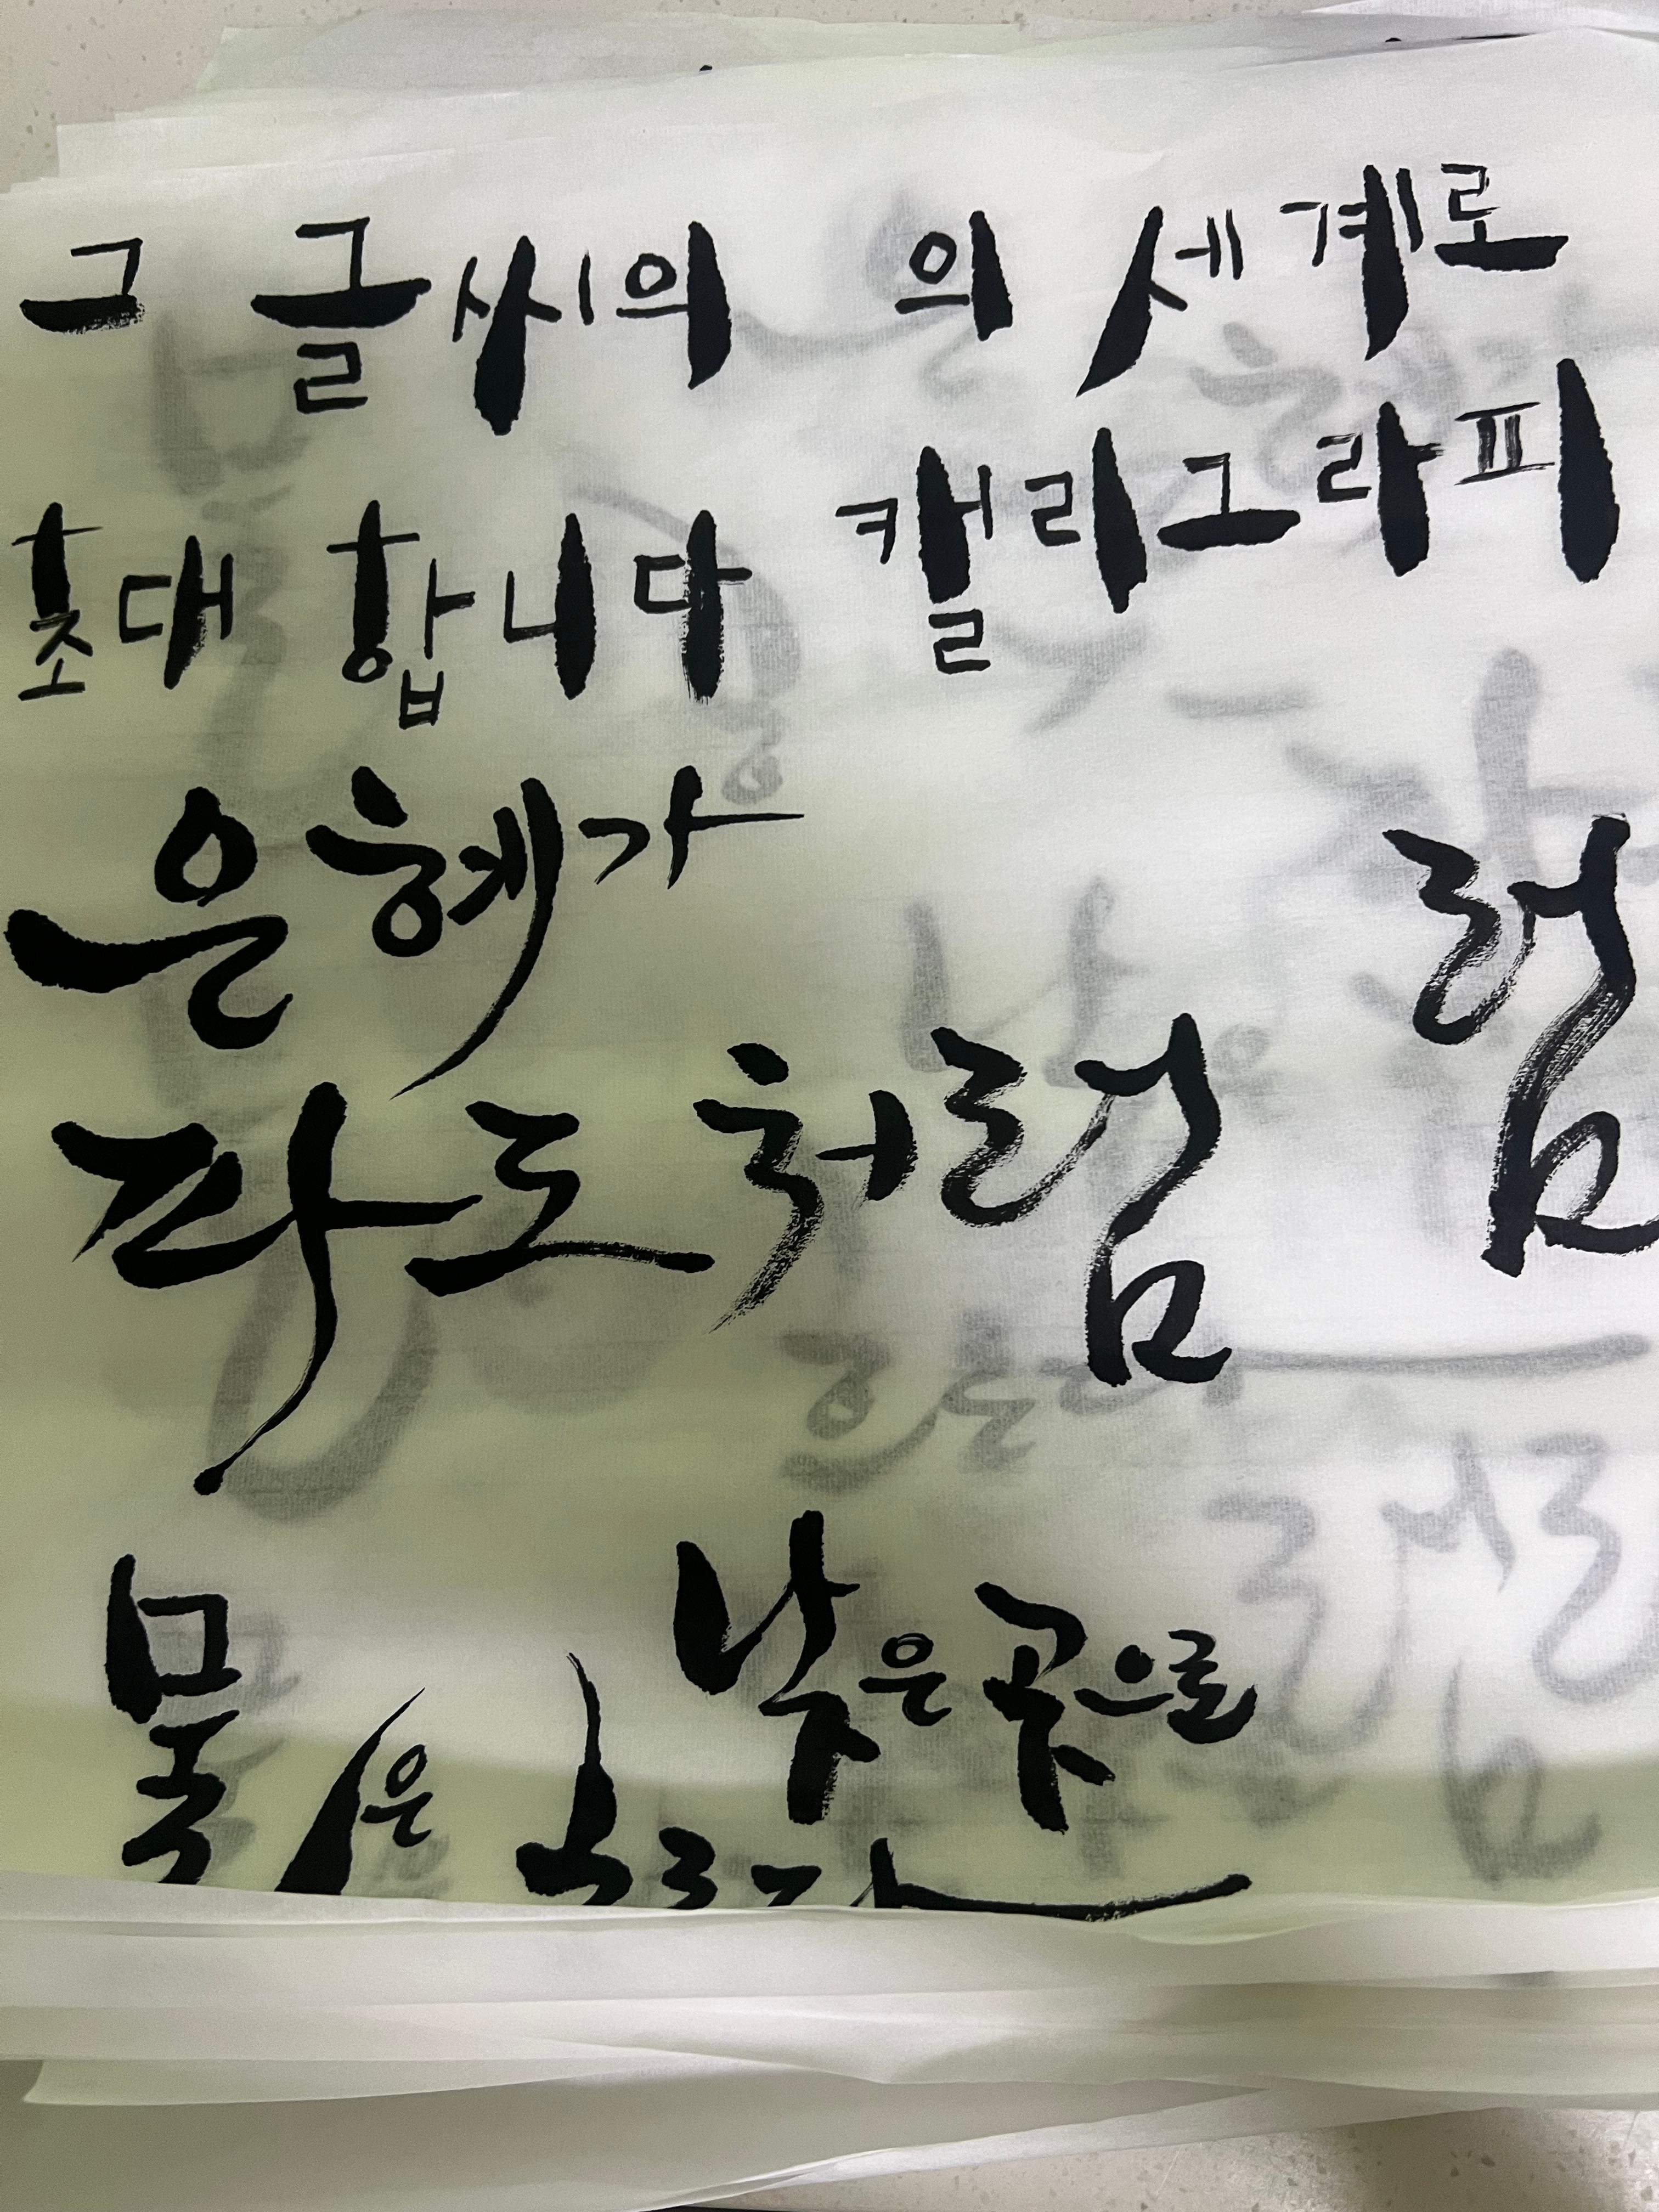 그 글씨의 의 세계로
초대 합니다 캘리그라피
은혜가
파도처럼 럼
물은 낮은곳으로
흐른다